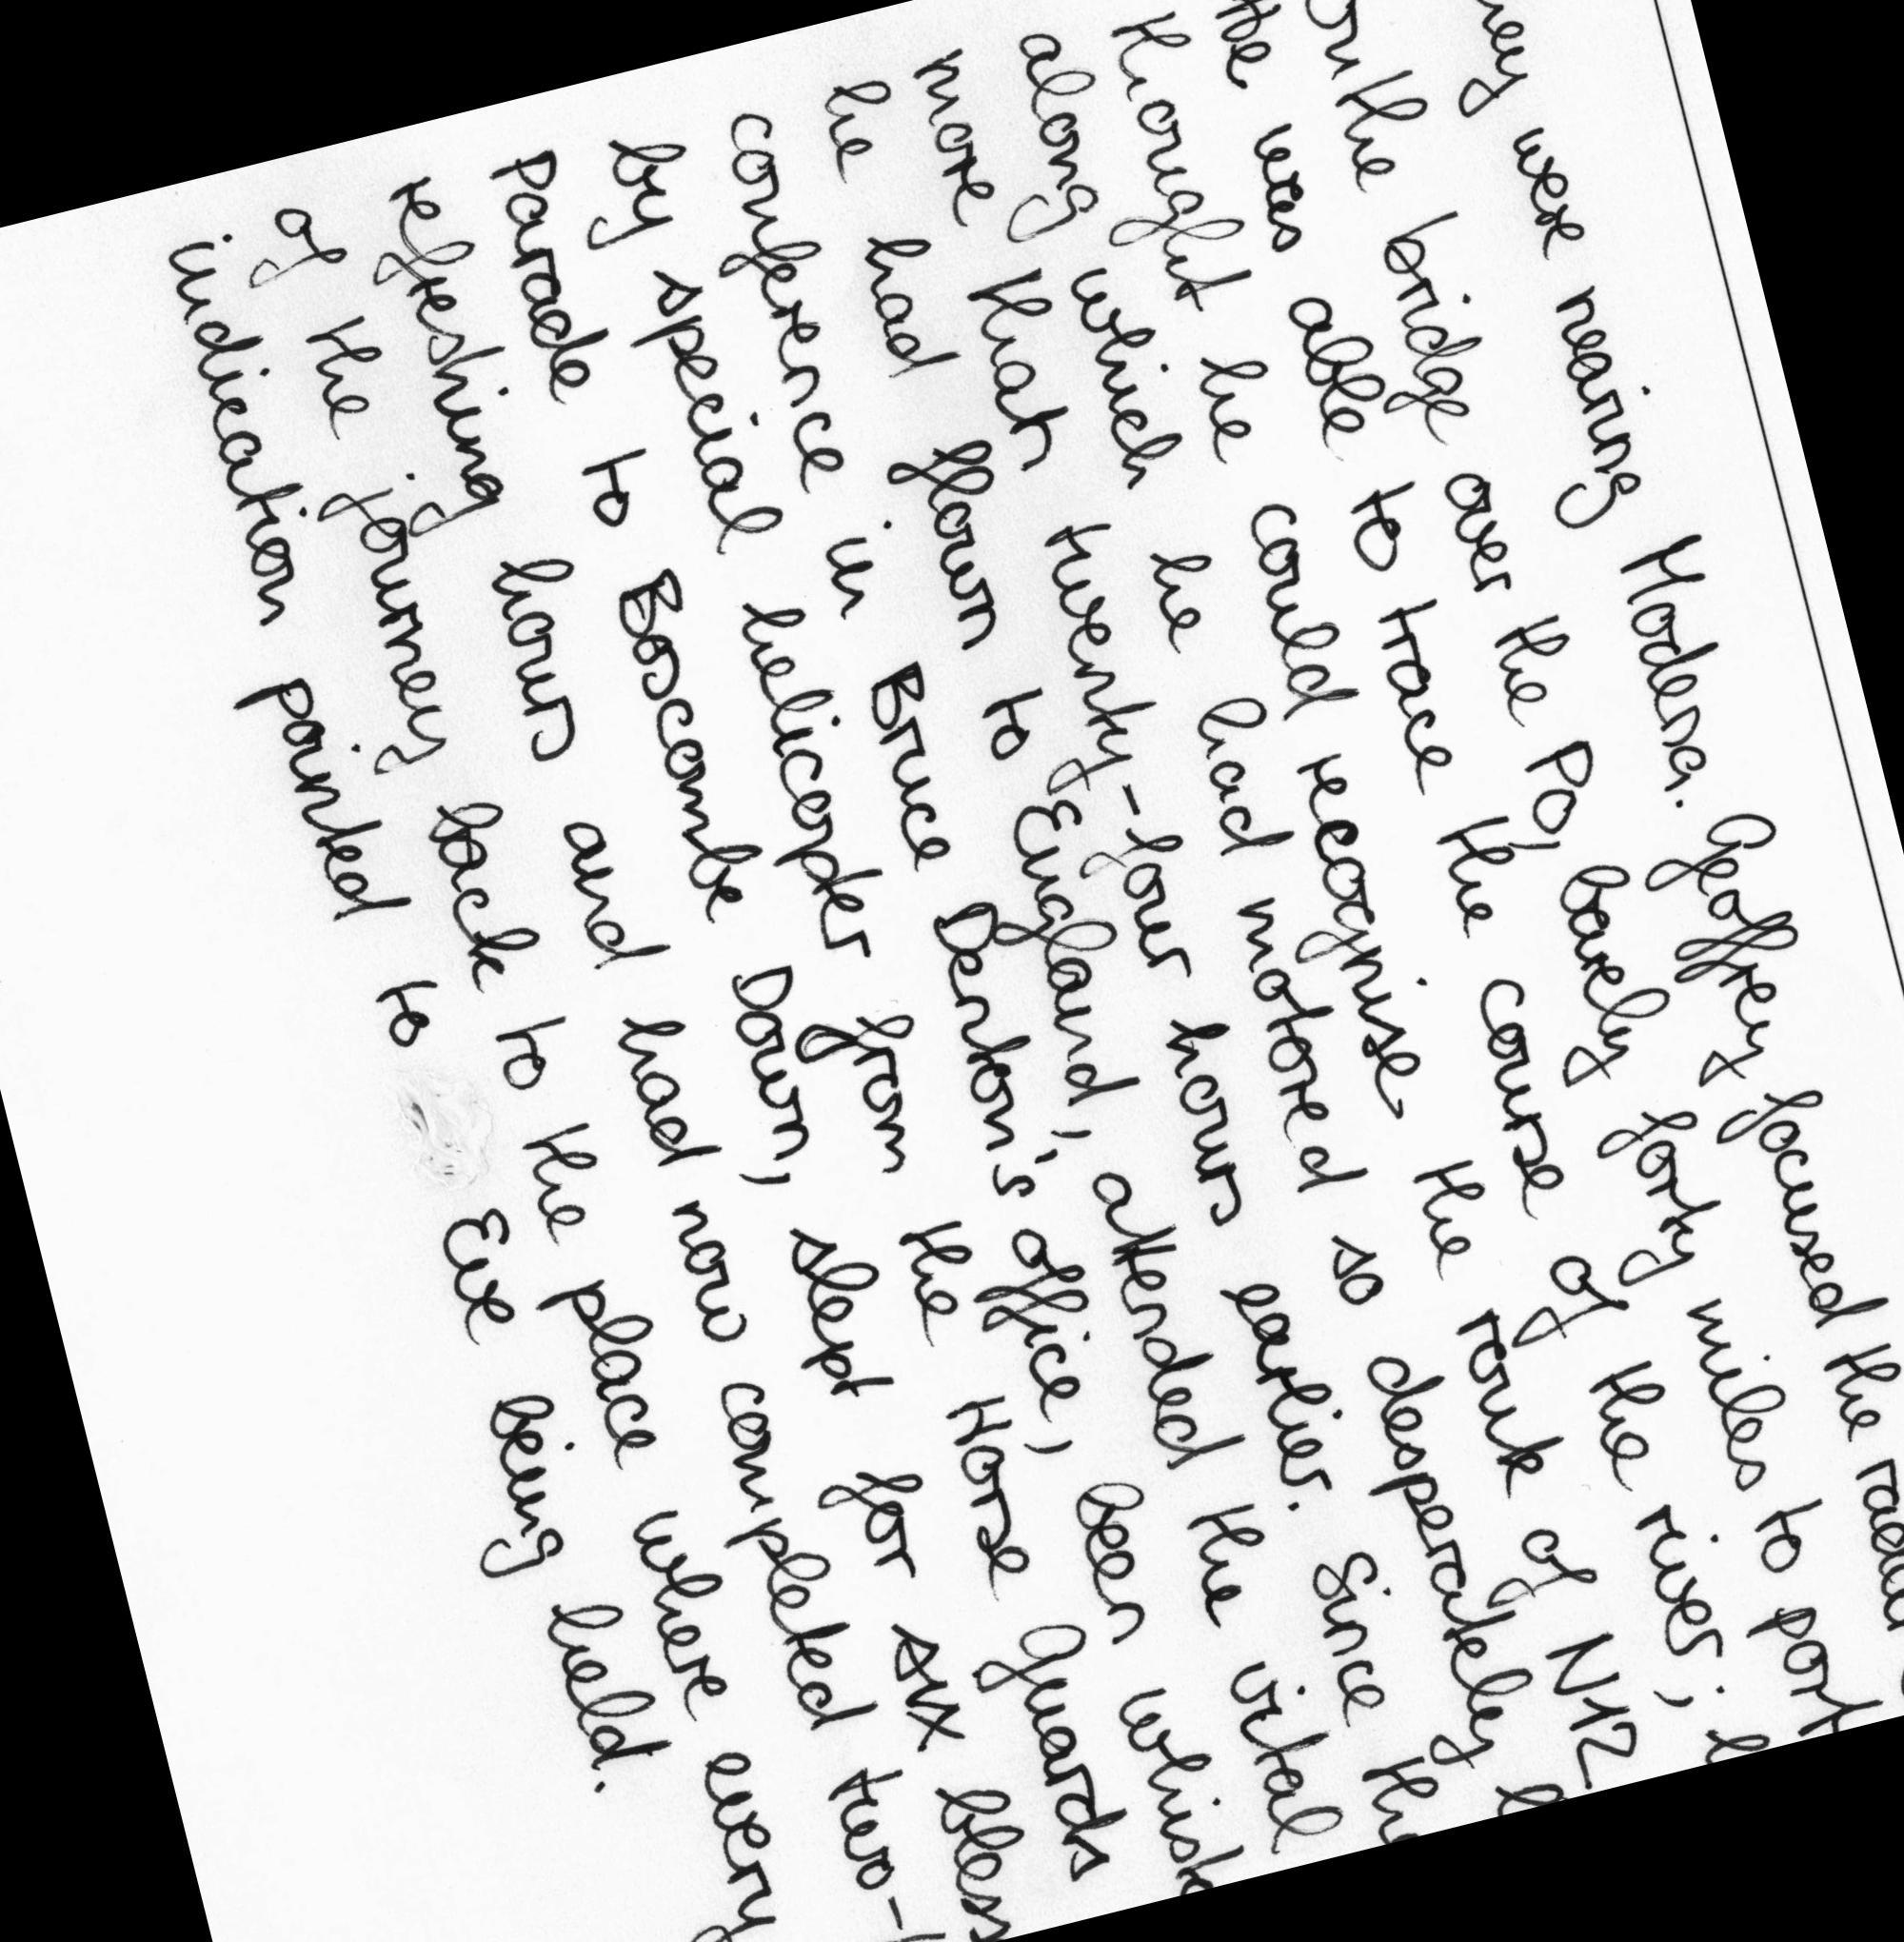 were nearing Modena. Geoffrey focused the
on the bridge over the Po, barely forty miles to port
He was able to trace the course of the river;
thought he could recognise the route of N12
along which he had motored so desperately
more than twenty-four hours earlier. Since
he had flown to England, attended the vital
conference in Bruce Denton's office, been
by special helicopter from the Horse Guards
Parade to Boscombe Down, slept for six
refreshing hours and had now completed two-
of the journey back to the place where every
indication pointed to Eve being held.